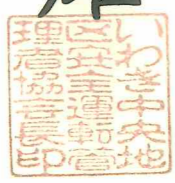 いわき中央地
区安全運転管
理者協会長印